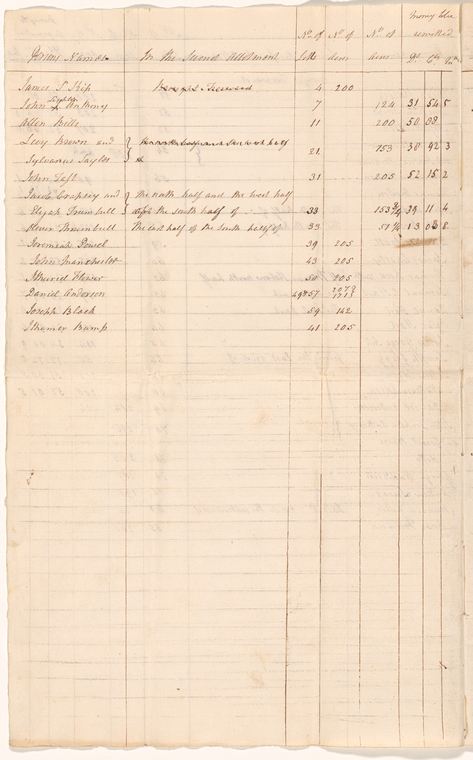 Money
No. of No. of No. of remitted
Names In the Second Allotment Lotts Acres Acres
James S Kip 4 200
John Anthony 7 124 31 54 5
Allen Bills 11 200 50 98
Levy Brown and
Sylvanus Saylor 21 153 38 92 3
John Taft 31 205 52 15 2
Jacob Cropsey and } The north half and the west half
Elijah Trumbull of the south half of 33 153 3/4 39 11 4
Trumbull The east half of the South half of 33 51 1/4 13 03 8
Jeremiah Powel 39 205
John Manchester 43 205
50 205
Daniel Anderson 49&57
Joseph Black 59 142
Bump 41 205